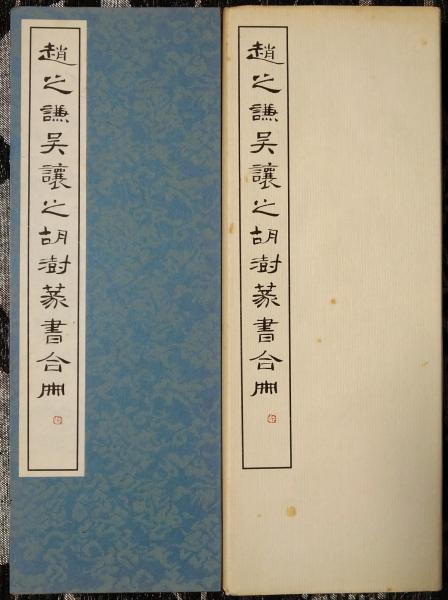 趙之謙吳讓之胡澍篆書合冊
趙之謙吳讓之胡澍篆書合冊